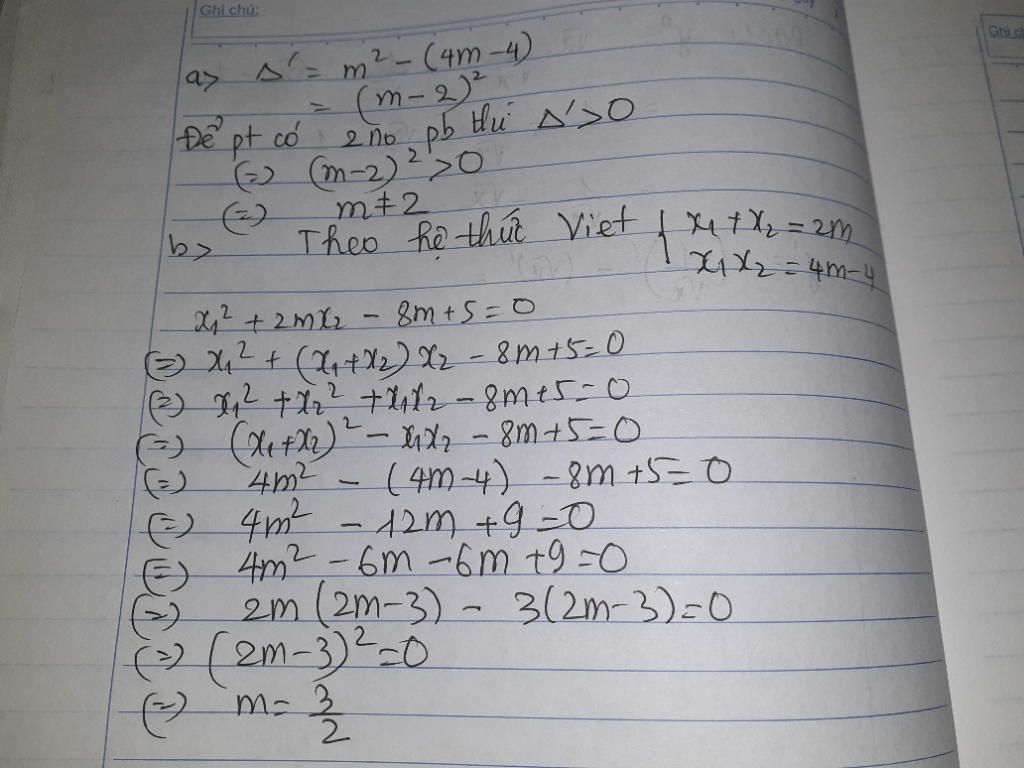 Ghi chú:
a> Δ' = m² - (4m-4)
= (m-2)²
Để pt có 2 no pb thì Δ'>0
(=) (m-2)² >0
(=) m≠2
b> Theo hệ thức Viet { x₁ + x₂ = 2m
x₁x₂ = 4m-4
x₁² + 2mx₂ - 8m+5=0
(=) x₁² + (x₁+x₂) x₂ - 8m+5=0
(=) x₁² + x₂² + x₁x₂ - 8m+5=0
(=) (x₁+x₂)² - x₁x₂ - 8m+5=0
(=) 4m² - (4m-4) - 8m+5=0
(=) 4m² - 12m +9=0
(=) 4m² - 6m - 6m +9=0
(=) 2m (2m-3) - 3(2m-3)=0
(=) (2m-3)²=0
(=) m= 3/2